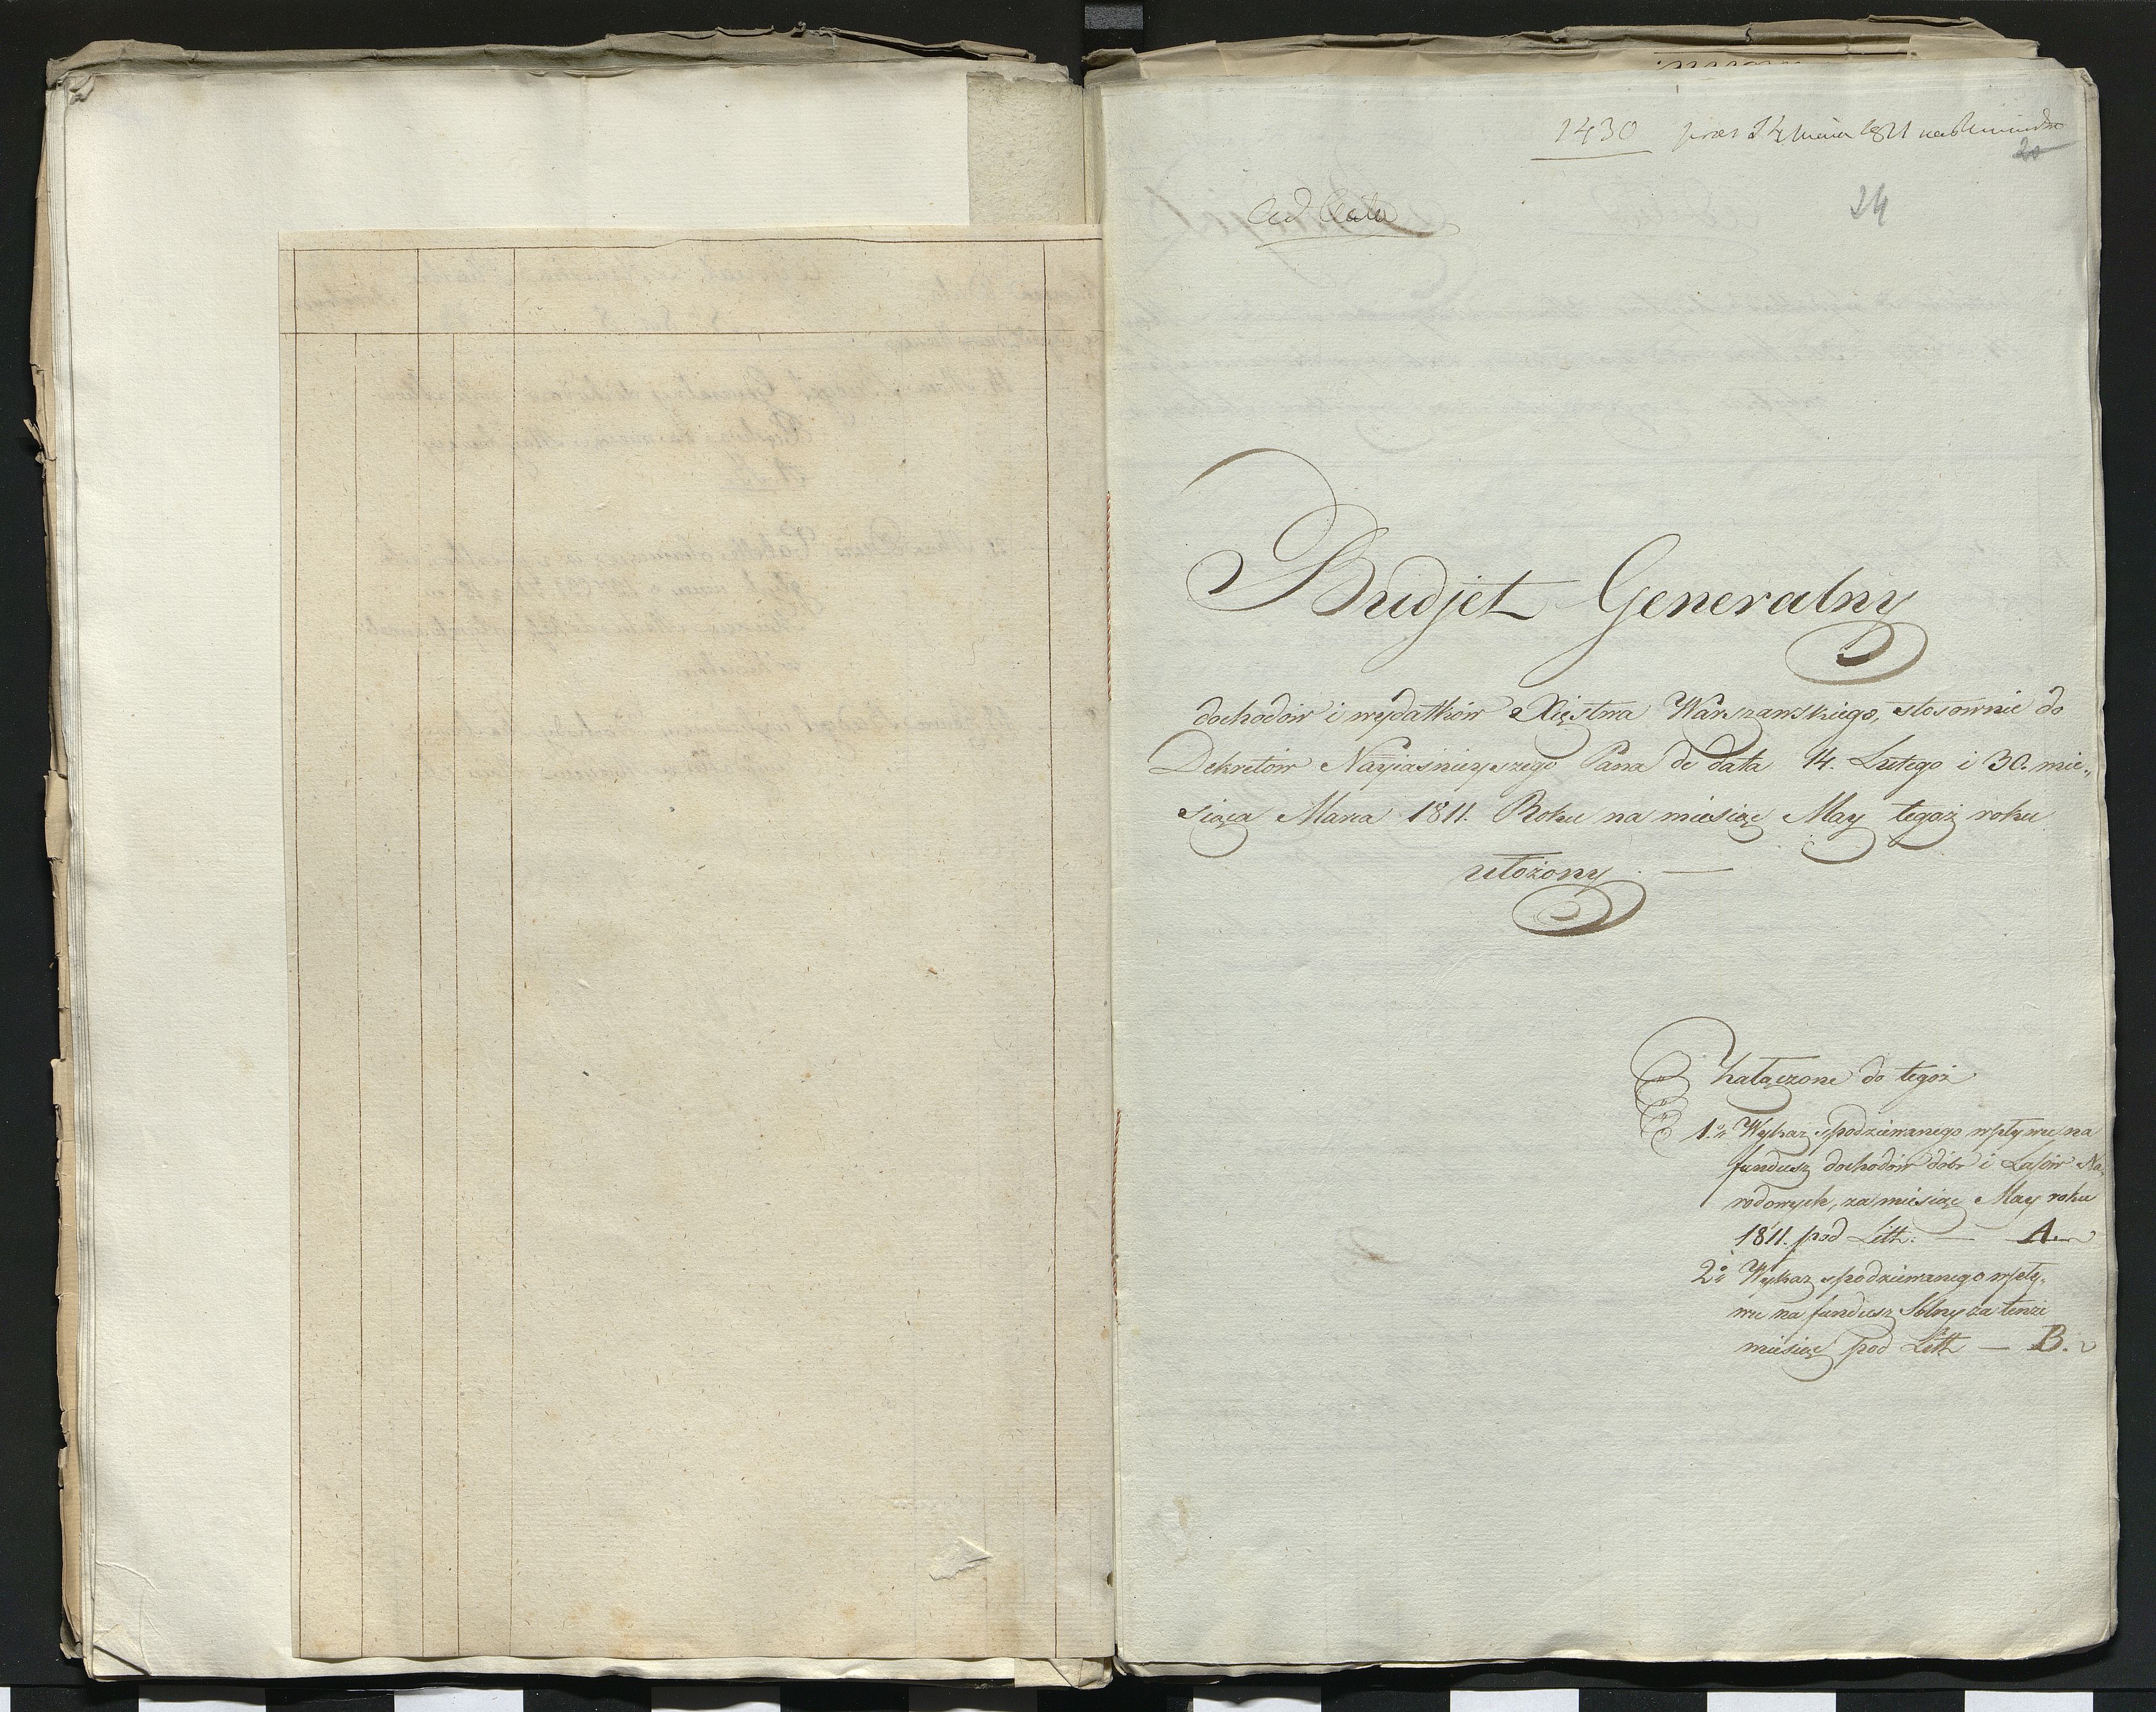 1430
20
24
Ad Acta
Budjet Generalny
dochodów i wydatków Xięstwa Warszawskiego, stosownie do
Dekretów Nayiaśnieyszego Pana de data 14. Lutego i 30. mie„
siąca Marca 1811. Roku na miesiąc May tegoż roku
ułożony. —
Załączone do tegoż
1.o Wykaz spodziewanego wpływu na
fundusz dochodów dóbr i Lasów Na„
rodowych, za miesiąc May roku
1811. pod Lith: — A.
2.o Wykaz spodziewanego wpły„
wu na fundusz Solny za tenże
miesiąc pod Lith — B.